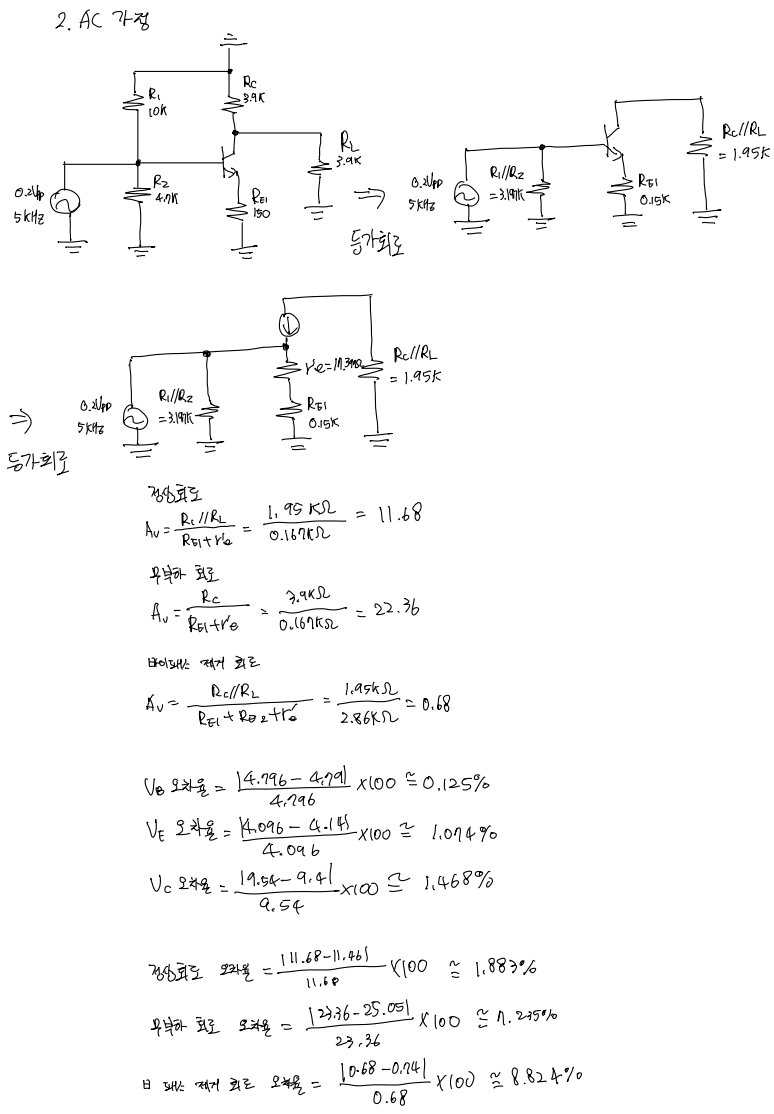 2. AC 가정
R1
10K
RC
3.9K
RL
3.9K
0.2Vpp
5KHz
R2
4.7K
RE1
150
⇒
등가회로
0.2Vpp
5KHz
R1//R2
=3.197K
RE1
0.15K
RC//RL
=1.95K
⇒
등가회로
0.2Vpp
5KHz
R1//R2
=3.197K
r'e=17.3mΩ
RE1
0.15K
RC//RL
=1.95K
정상회로
Av = RC//RL / RE1+r'e = 1.95KΩ / 0.167KΩ = 11.68
무부하 회로
Av = RC / RE1+r'e = 3.9KΩ / 0.167KΩ = 22.36
바이패스 제거 회로
Av = RC//RL / RE1+RE2+r'e = 1.95KΩ / 2.86KΩ = 0.68
VB 오차율 = |4.796-4.79| / 4.796 ×100 ≅ 0.125%
VE 오차율 = |4.096-4.14| / 4.096 ×100 ≅ 1.074%
VC 오차율 = |9.54-9.4| / 9.54 ×100 ≅ 1.468%
정상회로 오차율 = |11.68-11.46| / 11.68 ×100 ≅ 1.883%
무부하 회로 오차율 = |23.36-25.05| / 23.36 ×100 ≅ 7.235%
바 패스 제거 회로 오차율 = |0.68-0.74| / 0.68 ×100 ≅ 8.824%